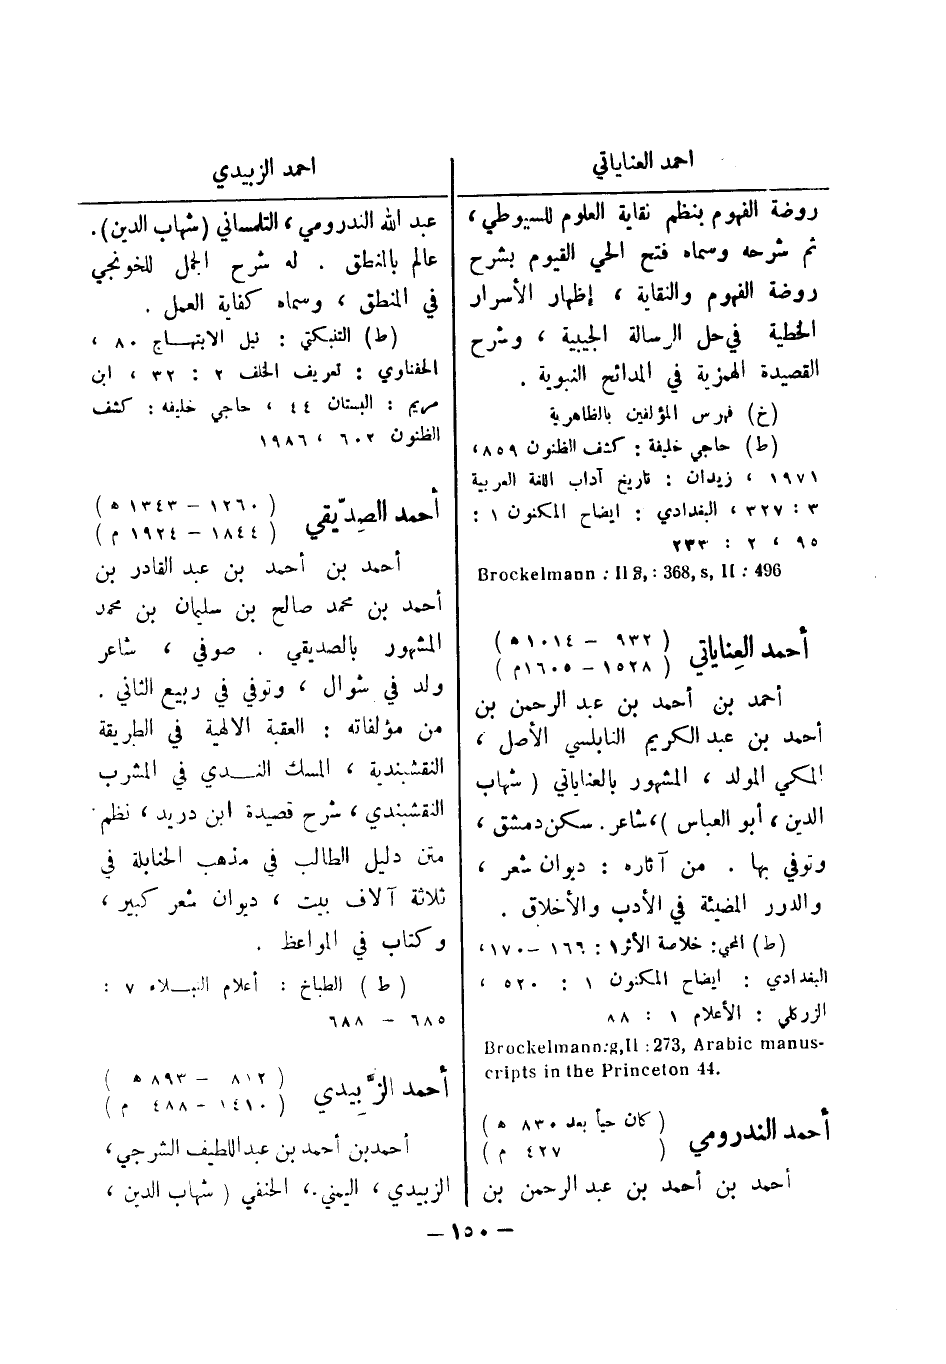 احمد العناياتي
روضة الفهوم بنظم نقاية العلوم للسيوطي ،
ثم شرحه وسماه فتح الحي القيوم بشرح
روضة الفهوم والنقاية ، إظهار الأسرار
الخطية في حل الرسالة الجيبية ، وشرح
القصيدة الهمزية في المدائح النبوية .
(خ) فهرس المؤلفين بالظاهرية
(ط) حاجي خليفة : كشف الظنون ٨٥٩،
١٩٧١ ، زيدان : تاريخ آداب اللغة العربية
٣ : ٣٢٧ ، البغدادي : ايضاح المكنون ١ :
٩٥ ، ٢ : ٢٣٣
Brockelmann : II g, : 368, s, II : 496
أحمد العِناياتي ( ٩٣٢ - ١٠١٤ ه )
( ١٥٢٨ - ١٦٠٥م )
أحمد بن أحمد بن عبد الرحمن بن
أحمد بن عبد الكريم النابلسي الأصل ،
المكي المولد ، المشهور بالعناياتي ( شهاب
الدين ، أبو العباس )، شاعر . سكن دمشق ،
وتوفي بها . من آثاره : ديوان شعر ،
والدرر المضيئة في الأدب والأخلاق .
(ط) المحبي: خلاصة الأثر١ : ١٦٦ -١٧٠،
البغدادي : ايضاح المكنون ١ : ٥٢٠ ،
الزركلي : الأعلام ١ : ٨٨
Brockelmann:g,II :273, Arabic manus-
cripts in the Princeton 44.
أحمد الندرومي ( كان حياً بعد ٨٣٠ ه )
( ٤٢٧ م )
أحمد بن أحمد بن عبد الرحمن بن
احمد الزبيدي
عبد الله الندرومي ، التلمساني (شهاب الدين).
عالم بالمنطق . له شرح الجمل للخونجي
في المنطق ، وسماه كفاية العمل .
(ط) التنبكتي : نيل الابتهاج ٨٠ ،
الحفناوي : تعريف الخلف ٢ : ٣٢ ، ابن
مريم : البستان ٤٤ ، حاجي خليفه : كشف
الظنون ٦٠٢ ، ١٩٨٦
أحمد الصِدّيقي ( ١٢٦٠ - ١٣٤٣ ه )
( ١٨٤٤ - ١٩٢٤ م )
أحمد بن أحمد بن عبد القادر بن
أحمد بن محمد صالح بن سليمان بن محمد
المشهور بالصديقي . صوفي ، شاعر
ولد في شوال ، وتوفي في ربيع الثاني .
من مؤلفاته : العقبة الالهية في الطريقة
النقشبندية ، المسك النـدي في المشرب
النقشبندي ، شرح قصيدة ابن دريد ، نظم
متن دليل الطالب في مذهب الحنابلة في
ثلاثة آلاف بيت ، ديوان شعر كبير ،
وكتاب في المواعظ .
( ط ) الطباخ : أعلام النبلاء ٧ :
٦٨٥ - ٦٨٨
أحمد الزَّبِيدي ( ٨١٢ - ٨٩٣ ه )
( ١٤١٠ - ٤٨٨ م )
أحمد بن أحمد بن عبد اللطيف الشرجي،
الزبيدي ، اليمني ، الحنفي ( شهاب الدين ،
— ١٥٠ —